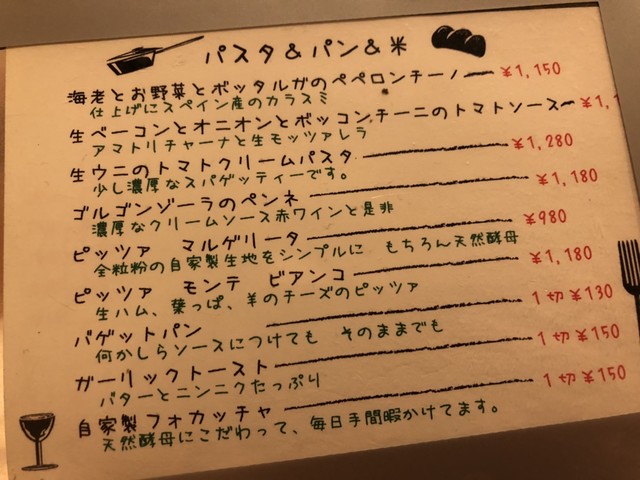 パスタ&パン&米
海老とお野菜とボッタルガのペペロンチーノ ¥1,150
仕上げにスペイン産のカラスミ
生ベーコンとオニオンとボッコンチーニのトマトソース ¥1,1
アマトリチャーナと生モッツァレラ
生ウニのトマトクリームパスタ ¥1,280
少し濃厚なスパゲッティーです。
ゴルゴンゾーラのペンネ ¥1,180
濃厚なクリームソース赤ワインと是非
ピッツァ マルゲリータ ¥980
全粒粉の自家製生地をシンプルに もちろん天然酵母
ピッツァ モンテ ビアンコ ¥1,180
生ハム、葉っぱ、羊のチーズのピッツァ
バゲットパン 1切¥130
何かしらソースにつけても そのままでも
ガーリックトースト 1切¥150
バターとニンニクたっぷり
自家製フォカッチャ 1切¥150
天然酵母にこだわって、毎日手間暇かけてます。